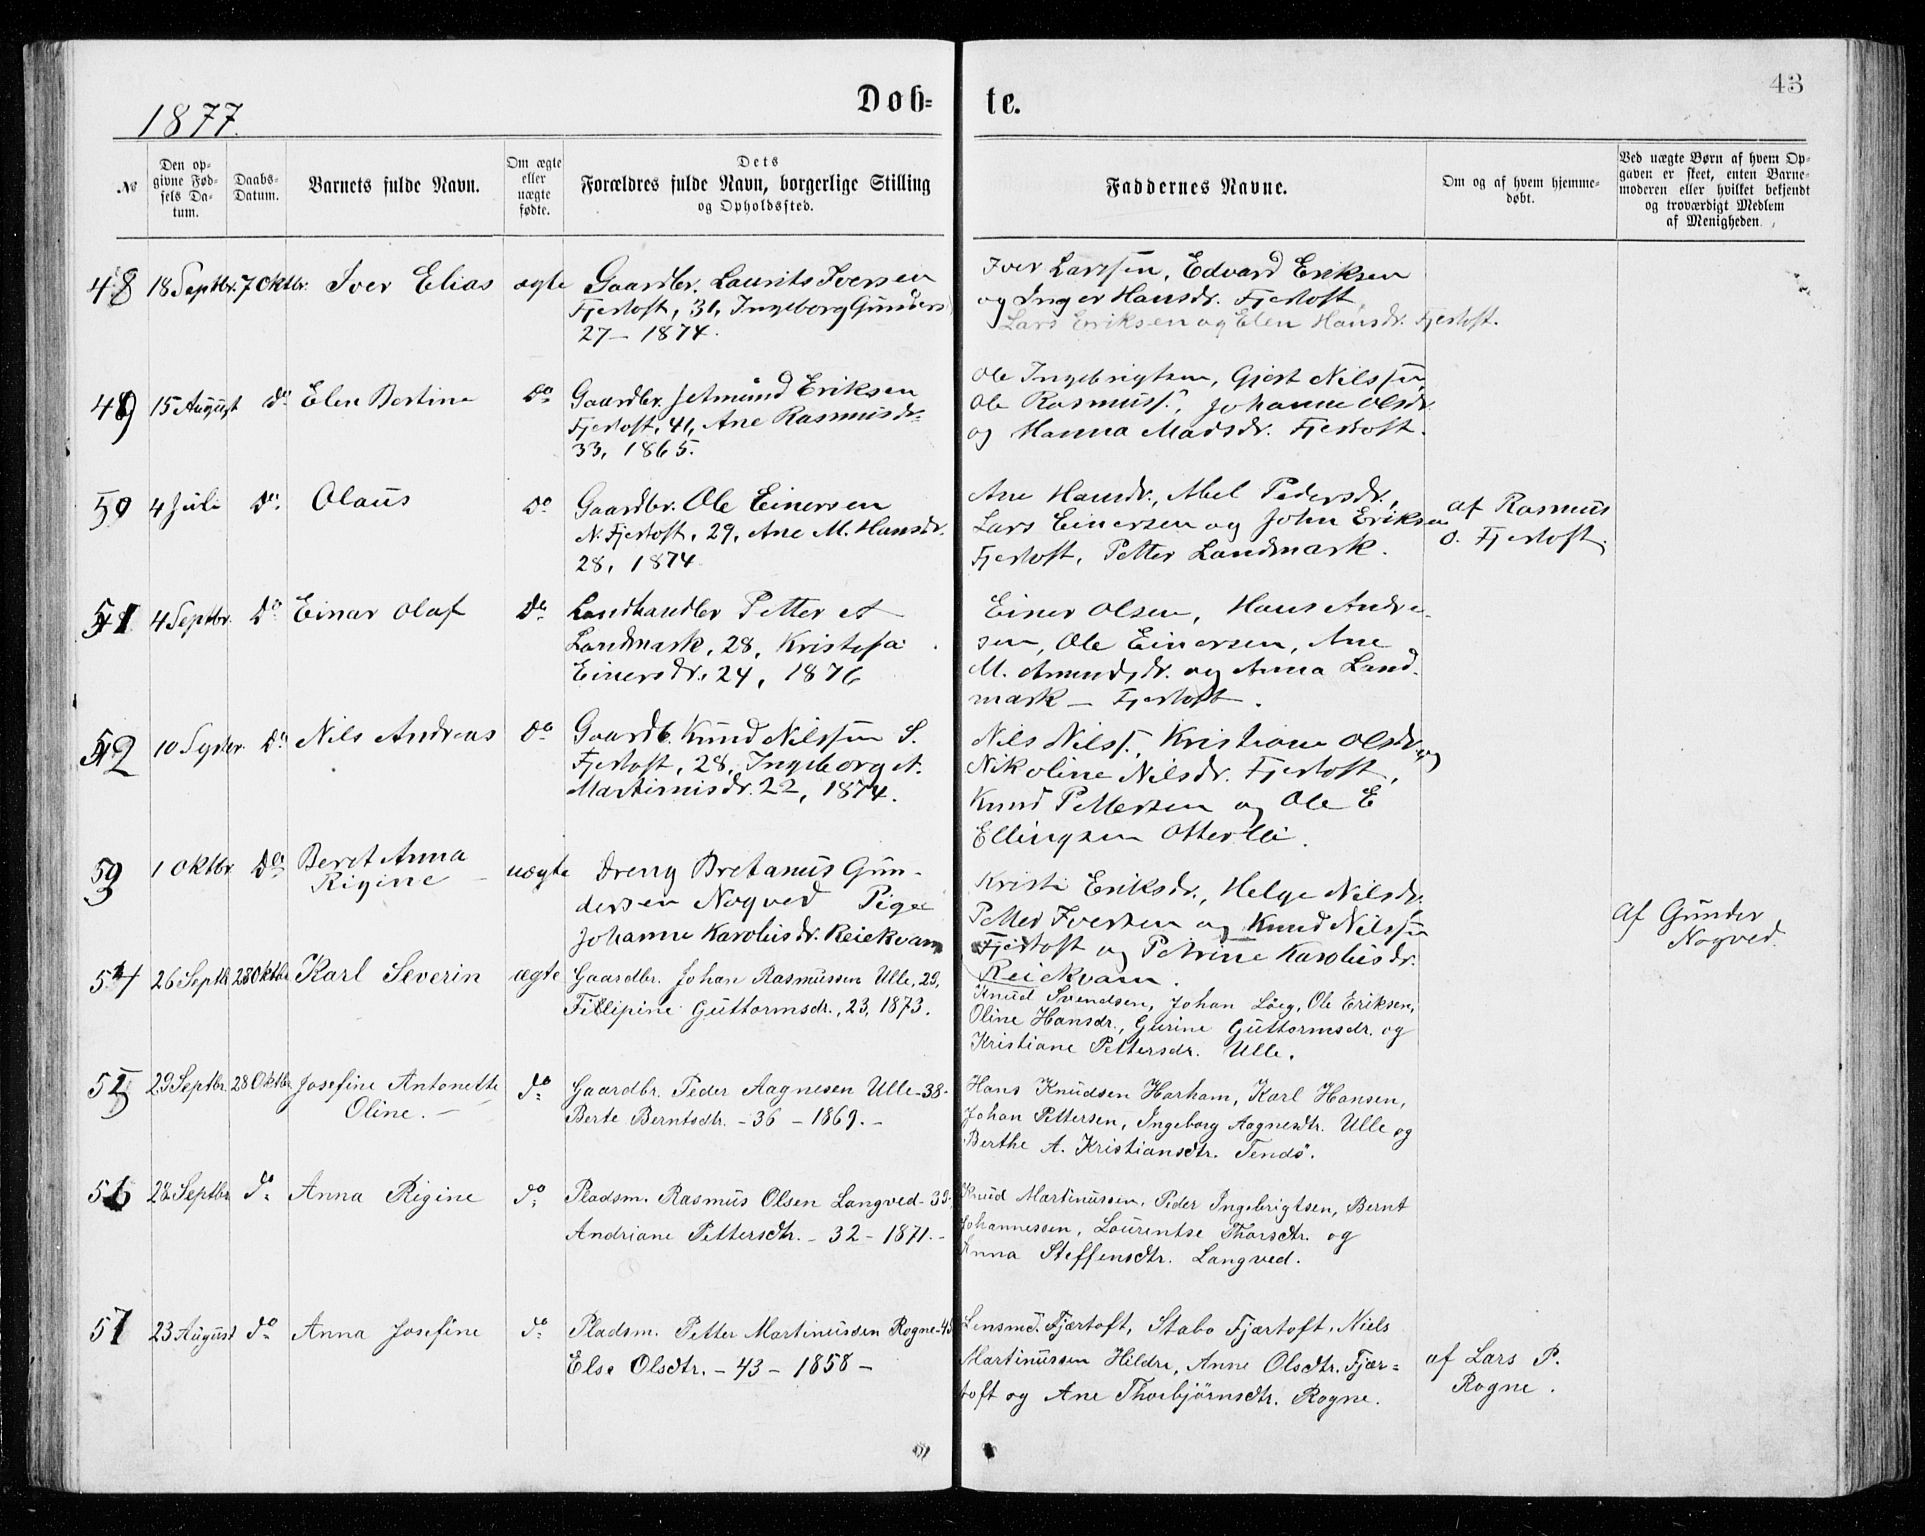 43
1877.
Døb=
te.
№
Den op-
givne Fød-
sels Da-
tum.
Daabs-
Datum.
Barnets fulde Navn.
Om ægte
eller
uægte
fødte.
Dets
Forældres fulde Navn, borgerlige Stilling
og Opholdssted.
Faddernes Navne.
Om og af hvem hjemme-
døbt.
Ved uægte Børn af hvem Op-
gaven er skeet, enten Barne-
moderen eller hvilket bekjendt
og troværdigt Medlem
af Menigheden.
48 18 Septbr. 7 Oktbr. Iver Elias ægte Gaardbr. Laurits Iversen
Fjertoft, 31, Ingeborg Gunders
27 – 1874.
Iver Larssen, Edvard Eriksen
og Inger Hansdr. Fjertoft,
Lars Eriksen og Elen Hansdr. Fjertoft.
49 15 August do Elen Bertine do Gaardbr. Jetmund Eriksen
Fjertoft, 41, Ane Rasmusdr.
33, 1865.
Ole Ingebrigtsen, Gjert Nilssen,
Ole Rasmuss., Johanne Olsdr.
og Hanna Madsdr. Fjertoft.
50 4 Juli do Olaus do Gaardbr. Ole Einersen
N. Fjertoft, 29, Ane M. Hansdr.
28, 1874.
Ane Hansdr., Abel Pedersdr.,
Lars Einersen og John Eriksen
Fjertoft, Petter Landmark.
af Rasmus
O. Fjertoft.
51 4 Septbr. do Einar Olaf do Landhandler Petter A
Landmark, 28, Kristofa
Einersdr. 24, 1876
Einer Olsen, Hans Andre-
sen, Ole Einersen, Ane
M. Amundsdr. og Anna Land-
mark – Fjertoft.
52 10 do Nils Andreas do Gaardb. Knud Nilssen S.
Fjertoft, 28, Ingeborg A.
Martinusdr. 22, 1874.
Nils Nilss. Kristiane Olsdr. og
Nikoline Nilsdr. Fjertoft,
Knud Pettersen og Ole E
Ellingsen Otterlei.
53 1 Oktbr do Beret Anna
Rigine –
uægte Dreng Bretanus Gun-
dersen Nogved Pige
Johanne Karolusdr. Reiekvam
Kristi Eriksdr., Helge Nilsdr.
Petter Iversen og Knud Nilssen
Fjertoft og Petrine Karolusdr.
Reiekvam.
Af Gunder
Nogved.
54 26 Septbr 28 Oktbr Karl Severin ægte Gaardbr. Johan Rasmussen Ulle, 29,
Fillipine Guttormsdr., 23, 1873.
Knud Svendsen, Johan Løeg, Ole Eriksen,
Oline Hansdr., Gurine Guttormsdr. og
Kristiane Pettersdr. Ulle.
55 29 Septbr. 28 Oktbr Josefine Antonette
Oline. –
do Gaardbr. Peder Aagnesen Ulle – 38 –
Berte Berntsdtr. – 36 – 1869. –
Hans Knudsen Harham, Karl Hansen,
Johan Pettersen, Ingeborg Aagnesdtr. Ulle og
Berthe A. Kristiansdtr. Tendø.
56 28 Septbr do Anna Rigine do Pladsm. Rasmus Olsen Langved – 39 –
Andriane Pettersdtr. – 32 – 1871. –
Knud Martinussen, Peder Ingebrigtsen, Bernt
Johannessen, Laurentse Thorsdtr. og
Anna Steffensdtr. Langved.
57 23 August do Anna Josefine do Pladsm. Petter Martinussen Rogne – 43
Else Olsdtr. – 43 – 1858 –
Lensmd. Fjærtoft, Stabo Fjærtoft, Niels
Martinussen Hildre, Anne Olsdtr. Fjær=
toft og Ane Thorbjørnsdtr. Rogne.
af Lars P.
Rogne.